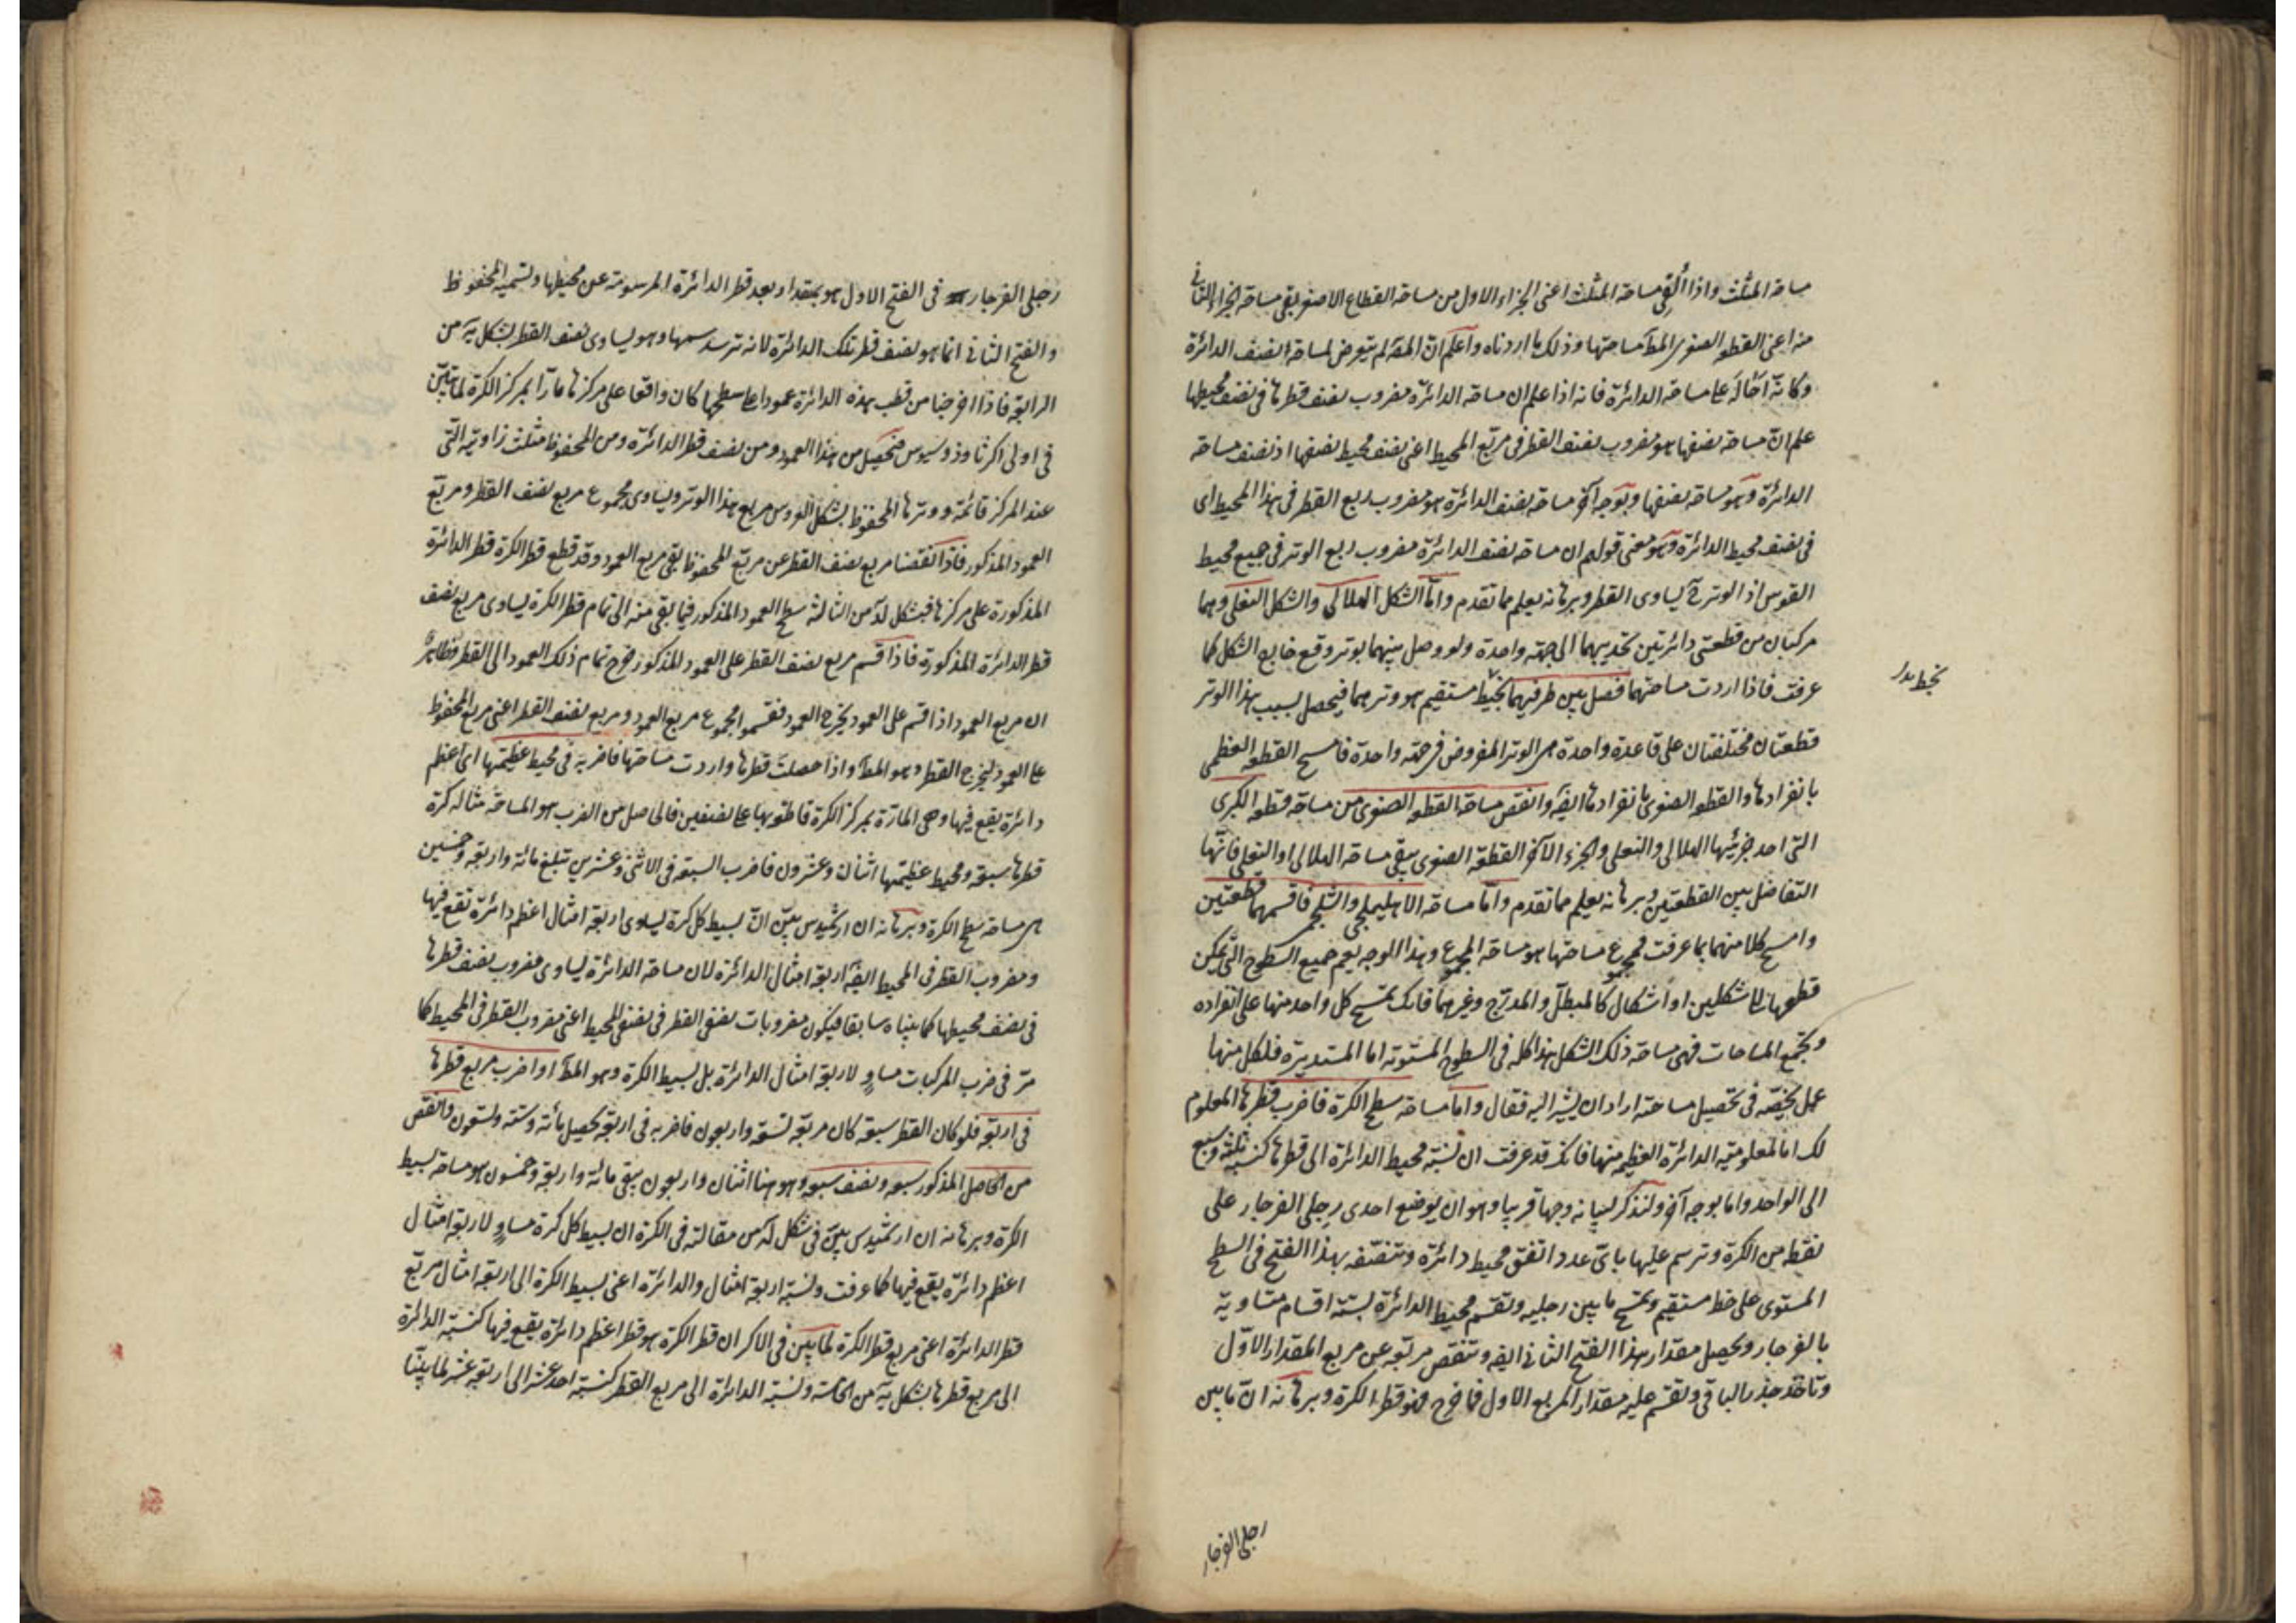 مساحة المثلث واذا ألقى مساحة المثلث اعنى الجزاء الاول من مساحة القطاع الاصغر بقى مساحة الجزاء الثانى
منه اعنى القطعة الصغرى المط مساحتها وذلك ما اردناه واعلم ان المقه لم يتعرض لمساحة نصف الدائرة
وكانه احاله على مساحة الدائرة فانه اذا علم ان مساحة الدائرة مضروب نصف قطرها فى نصف محيطها
علم ان مساحة نصفها هو مضروب نصف القطر فى مربع المحيط اعنى نصف محيط نصفها اذ نصف مساحة
الدائرة وهو مساحة نصفها وبوجه آخر مساحة نصف الدائرة هو مضروب ربع القطر فى هذا المحيط اى
فى نصف محيط الدائرة وهو معنى قولهم ان مساحة نصف الدائرة مضروب ربع الوتر فى جميع محيط
القوس اذ الوتر ح يساوى القطر وبرهانه يعلم مما تقدم واما الشكل الهلالى والشكل النعلى وهما
مركبان من قطعتى دائرتين تحديبهما الى جهة واحدة ولو وصل بينهما بوتر وقع خارج الشكل كما
عرفت فاذا اردت مساحتهما فصل بين طرفيهما بخط مستقيم هو وترهما فيحصل بسبب هذا الوتر
بخط
قطعتان مختلفتان على قاعدة واحدة هى الوتر المفروض فى جهة واحدة فامسح القطعة العظمى
بانفرادها والقطعة الصغرى بانفرادها ايضا وانقص مساحة القطعة الصغرى من مساحة قطعة الكبرى
التى احد جزئيها الهلالى والنعلى والجزء الآخر القطعة الصغرى يبقى مساحة الهلالى او النعلى فانها
التفاضل بين القطعتين وبرهانه يعلم مما تقدم واما مساحة الاهليلجى والشلجمى فاقسمهما قطعتين
وامسح كلا منهما بما عرفت فمجموع مساحتها هو مساحة المجموع وهذا الوجه يعم جميع السطوح التى يمكن
قطعها الى شكلين او اشكال كالمطبل والمدرج وغيرهما فانك تمسح كل واحد منها على انفراده
وتجمع المساحات فهى مساحة ذلك الشكل هذا كله فى السطوح المستوية اما المستديرة فلكل منها
عمل يخصه فى تحصيل مساحته اراد ان يشير اليه فقال واما مساحة سطح الكرة فاضرب قطرها المعلوم
لك اما لمعلومية الدائرة العظيمة منها فانك قد عرفت ان نسبة محيط الدائرة الى قطرها كنسبة ثلثة وسبع
الى الواحد واما بوجه آخر ولنذكر لبيانه وجها قريبا وهو ان يوضع احدى رجلى الفرجار على
نقطة من الكرة وترسم عليها باى عدد اتفق محيط دائرة وتنصفه بهذا الفتح فى السطح
المستوى على خط مستقيم وتمسح ما بين رجليه وتقسم محيط الدائرة بستة اقسام متساوية
بالفرجار ويحصل مقدار هذا الفتح الثانى ايضا وتنقص مربعه عن مربع المقدار الاول
وتاخذ جذر الباقى وتقسم عليه مقدار المربع الاول فما خرج فهو قطر الكرة وبرهانه ان ما بين
رجلى الفرجار
رجلى الفرجار فى الفتح الاول هو بمقدار بعد قطر الدائرة المرسومة عن محيطها ولنسميه المحفوظ
والفتح الثانى انما هو نصف قطر تلك الدائرة لانه وتر سدسها وهو يساوى نصف القطر بشكل يه من
الرابعة فاذا اخرجنا من قطب هذه الدائرة عمودا على سطحها كان واقعا على مركزها مارا بمركز الكرة لما تبين
فى اولى اكر ثاوذوسيوس فتحصل من هذا العمود ومن نصف قطر الدائرة ومن المحفوظ مثلث زاويته التى
عند المركز قائمة ووترها المحفوظ بشكل العروس مربع هذا الوتر ويساوى مجموع مربع نصف القطر ومربع
العمود المذكور فاذا نقصنا مربع نصف القطر عن مربع المحفوظ بقى مربع العمود وقد قطع قطر الكرة قطر الدائرة
المذكورة على مركزها فبشكل له من الثالثة سطح العمود المذكور فيما بقى منه الى تمام قطر الكرة يساوى مربع نصف
قطر الدائرة المذكورة فاذا قسم مربع نصف القطر على العمود المذكور خرج تمام ذلك العمود الى القطر فظاهر
ان مربع العمود اذا قسم على العمود يخرج العمود فنقسم المجموع مربع العمود ومربع نصف القطر اعنى مربع المحفوظ
على العمود ليخرج القطر وهو المط واذا حصلت قطرها واردت مساحتها فاضربه فى محيط عظيمتها اى اعظم
دائرة يقع فيها وهى المارة بمركز الكرة قاطعة بها على نصفين فالحاصل من الضرب هو المساحة مثاله كرة
قطرها سبعة ومحيط عظيمتها اثنان وعشرون فاضرب السبعة فى الاثنى وعشرين تبلغ مائة واربعة وخمسين
هى مساحة سطح الكرة وبرهانه ان ارشميدس بين ان بسيط كل كرة يساوى اربعة امثال اعظم دائرة تقع فيها
ومضروب القطر فى المحيط ايضا اربعة امثال الدائرة لان مساحة الدائرة يساوى مضروب نصف قطرها
فى نصف محيطها كما بيناه سابقا فيكون مضروبات نصفى القطر فى نصفى المحيط اعنى مضروب القطر فى المحيط كما
مر فى ضرب المركبات مساو لاربعة امثال الدائرة بل بسيط الكرة وهو المط او اضرب مربع قطرها
فى اربعة فلو كان القطر سبعة كان مربعه تسعة واربعون فاضربه فى اربعة تحصيل مائة وستة وتسعون وانقص
من الحاصل المذكور سبعه ونصف سبعه وهو هنا اثنان واربعون يبقى مائة واربعة وخمسون هو مساحة بسيط
الكرة وبرهانه ان ارشميدس بين فى شكل له من مقالته فى الكرة ان بسيط كل كرة مساو لاربعة امثال
اعظم دائرة يقع فيها كما عرفت ونسبة اربعة امثال والدائرة اعنى بسيط الكرة الى اربعة امثال مربع
قطر الدائرة اعنى مربع قطر الكرة لما بين فى الاكر ان قطر الكرة هو قطر اعظم دائرة يقع فيها كنسبة الدائرة
الى مربع قطرها بشكل يه من الخامسة ونسبة الدائرة الى مربع القطر كنسبة احد عشر الى اربعة عشر لما بينا